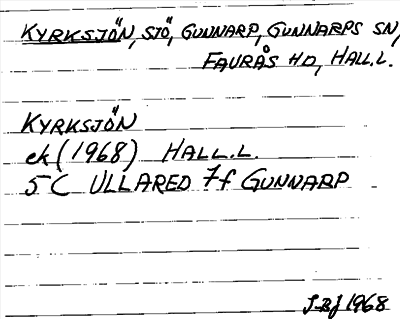 KYRKSJÖN, SJÖ, GUNNARP, GUNNARPS SN,
FAURÅS HD, HALL.L.
KYRKSJÖN
ek (1968) HALL.L.
5C ULLARED 7f GUNNARP
1968